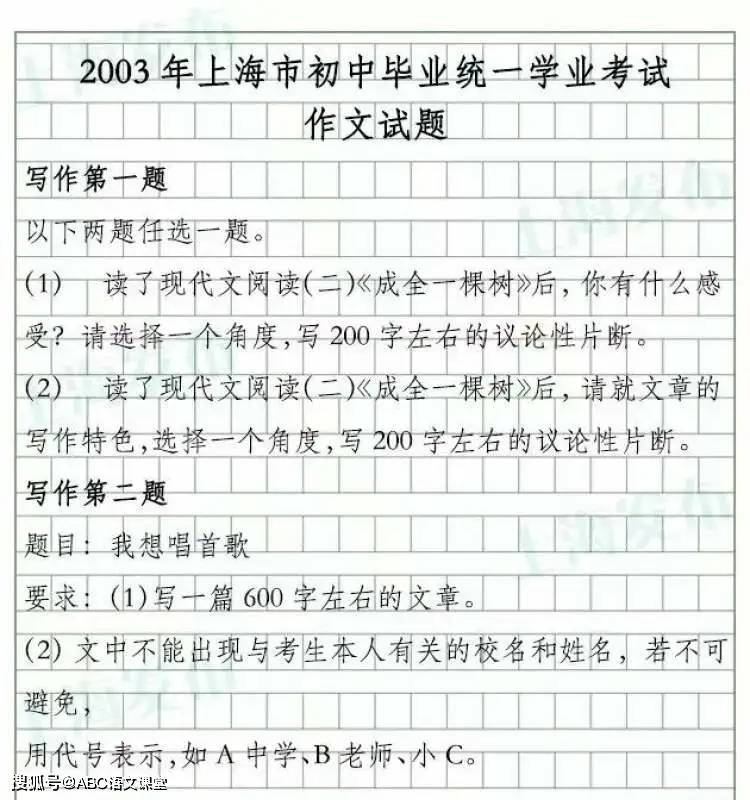 2003年上海市初中毕业统一学业考试
作文试题
写作第一题
以下两题任选一题。
(1) 读了现代文阅读(二)《成全一棵树》后，你有什么感
受？请选择一个角度,写200字左右的议论性片断。
(2) 读了现代文阅读(二)《成全一棵树》后，请就文章的
写作特色,选择一个角度,写200字左右的议论性片断。
写作第二题
题目：我想唱首歌
要求：(1)写一篇600字左右的文章。
(2)文中不能出现与考生本人有关的校名和姓名，若不可
避免，
用代号表示,如A中学、B老师、小C。
搜狐号@ABC语文课堂
上海发布
上海发布
上海发布
上海发布
上海发布